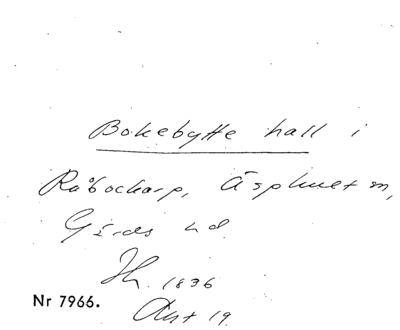 Bokebytte hall i
Råbockarp, Äsphult sn,
Gärds hd
Jh. 1836
Nr 7966.
19